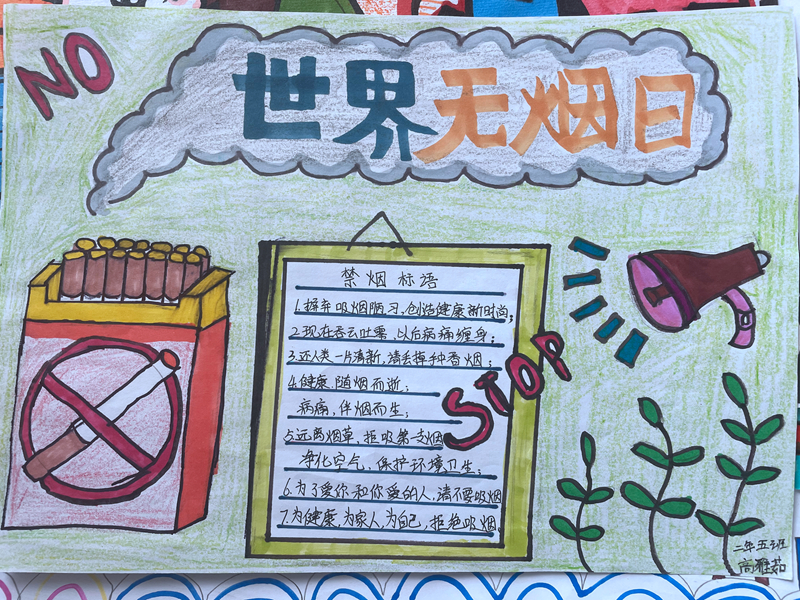 NO
世界无烟日
禁烟标语
1.摒弃吸烟陋习,创造健康新时尚;
2.现在吞云吐雾,以后病痛缠身;
3.还人类一片清新,请丢掉手中香烟;
4.健康,随烟而逝;
病痛,伴烟而生;
5.远离烟草,拒吸第一支烟
净化空气、保护环境卫生;
6.为了爱你和你爱的人,请不要吸烟
7.为健康,为家人,为自己,拒绝吸烟.
STOP
二年五班
高雅茹